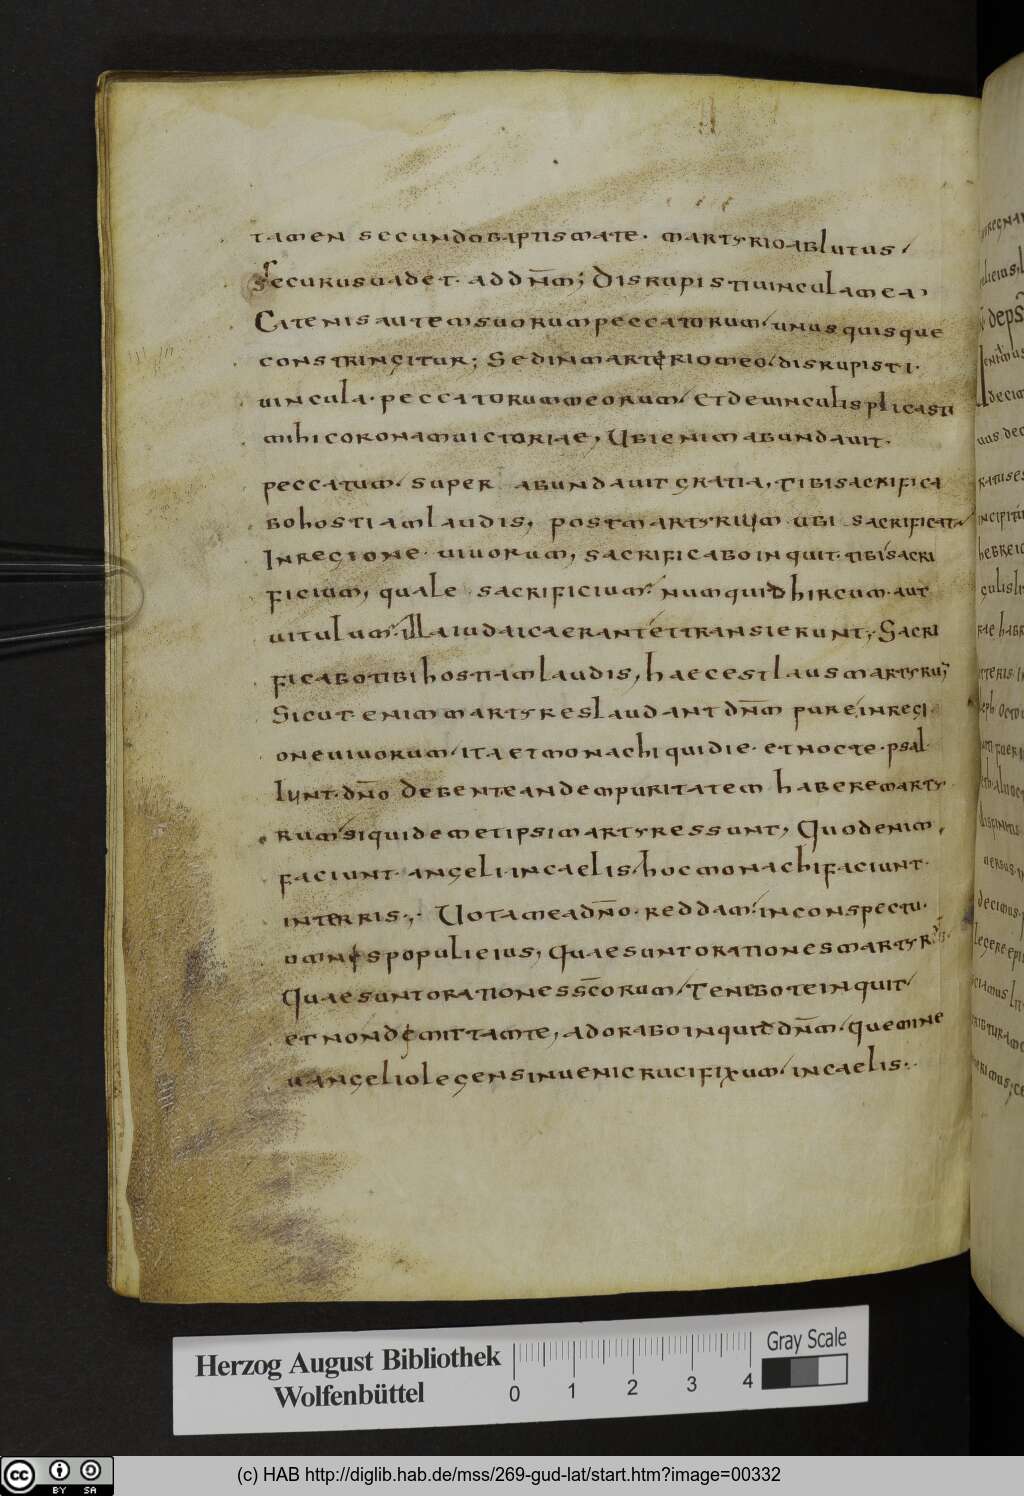 tamen secundobaptismate. martyrioablutus
securusuadet. addn̄m; Disrupistiuinculamea,
Catenisautemsuorumpeccatorum unusquisque
constringitur; Sedinmartyriomeo disrupisti.
uincula. peccatorummeorum Etdeuinculisplicasti
mihicoronamuictoriae, Ubienimabundauit.
peccatum. super abundauitgratia, Tibisacrifica
bohostiamlaudis, postmartyrium ubi sacrificat
Inregione uiuorum, sacrificaboinquit. tibisacri
ficium, quale sacrificium. numquidhircum. aut
uitulum. illaiudaicaerantettransierunt; Sacri
ficabotibihostiamlaudis, haecestlausmartyru
Sicut enim martyreslaudantdn̄m pure, inregi
oneuiuorum itaetmonachi quidie. etnocte. psal
lunt. dn̄o Debenteandempuritatem haberemarty
rum siquidemetipsimartyressunt, Quodenim
faciunt angeli incaelis hocmonachifaciunt
interris., Uotameadn̄o. reddam. inconspectu.
omnispopulieius, Quaesuntorationesmartyr
Quaesuntorationessc̄orum Teneboteinquit
etnondimittamte, adoraboinquitdn̄m quemine
uangeliolegensinuenicrucifixum incaelis.
Herzog August Bibliothek
Wolfenbüttel
0 1 2 3 4
Gray Scale
cc BY SA
(c) HAB http://diglib.hab.de/mss/269-gud-lat/start.htm?image=00332